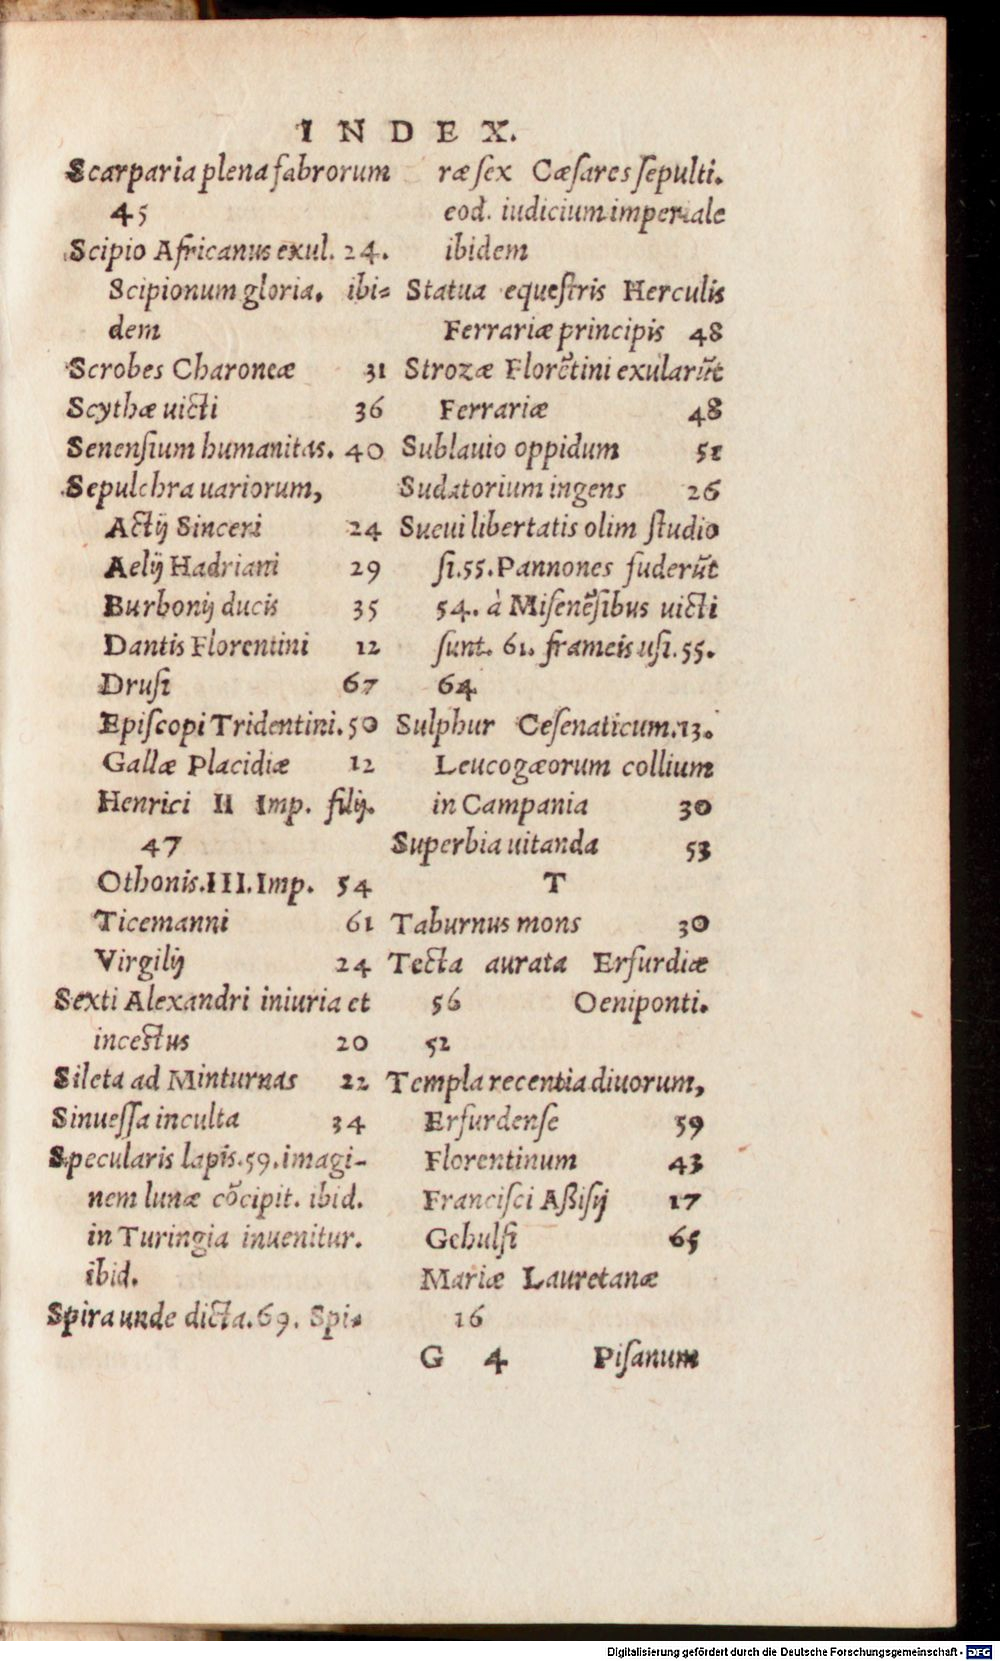 INDEX.
Scarparia plena fabrorum
45
Scipio Africanus exul. 24.
Scipionum gloria. ibi=
dem
Scrobes Charoneæ 31
Scythæ uicti 36
Senensium humanitas. 40
Sepulchra uariorum,
Actij Sinceri 24
Aelij Hadriani 29
Burbonij ducis 35
Dantis Florentini 12
Drusi 67
Episcopi Tridentini. 50
Gallæ Placidiæ 12
Henrici II Imp. filij.
47
Othonis.III.Imp. 54
Ticemanni 61
Virgilij 24
Sexti Alexandri iniuria et
incestus 20
Sileta ad Minturnas 22
Sinuessa inculta 34
Specularis lapis.59.imagi-
nem lunæ cõcipit. ibid.
in Turingia inuenitur.
ibid.
Spira unde dicta.69. Spi=
ræ sex Cæsares sepulti.
eod. iudicium imperiale
ibidem
Statua equestris Herculis
Ferrariæ principis 48
Strozæ Florẽtini exularũt
Ferrariæ 48
Sublauio oppidum 51
Sudatorium ingens 26
Sueui libertatis olim studio
si.55.Pannones fuderũt
54. à Misenẽsibus uicti
sunt. 61. frameis usi.55.
64
Sulphur Cesenaticum.13.
Leucogæorum collium
in Campania 30
Superbia uitanda 53
T
Taburnus mons 30
Tecta aurata Erfurdiæ
56 Oeniponti.
52
Templa recentia diuorum,
Erfurdense 59
Florentinum 43
Francisci Aßisij 17
Gebulsi 65
Mariæ Lauretanæ
16
G 4 Pisanum
Digitalisierung gefördert durch die Deutsche Forschungsgemeinschaft - DFG